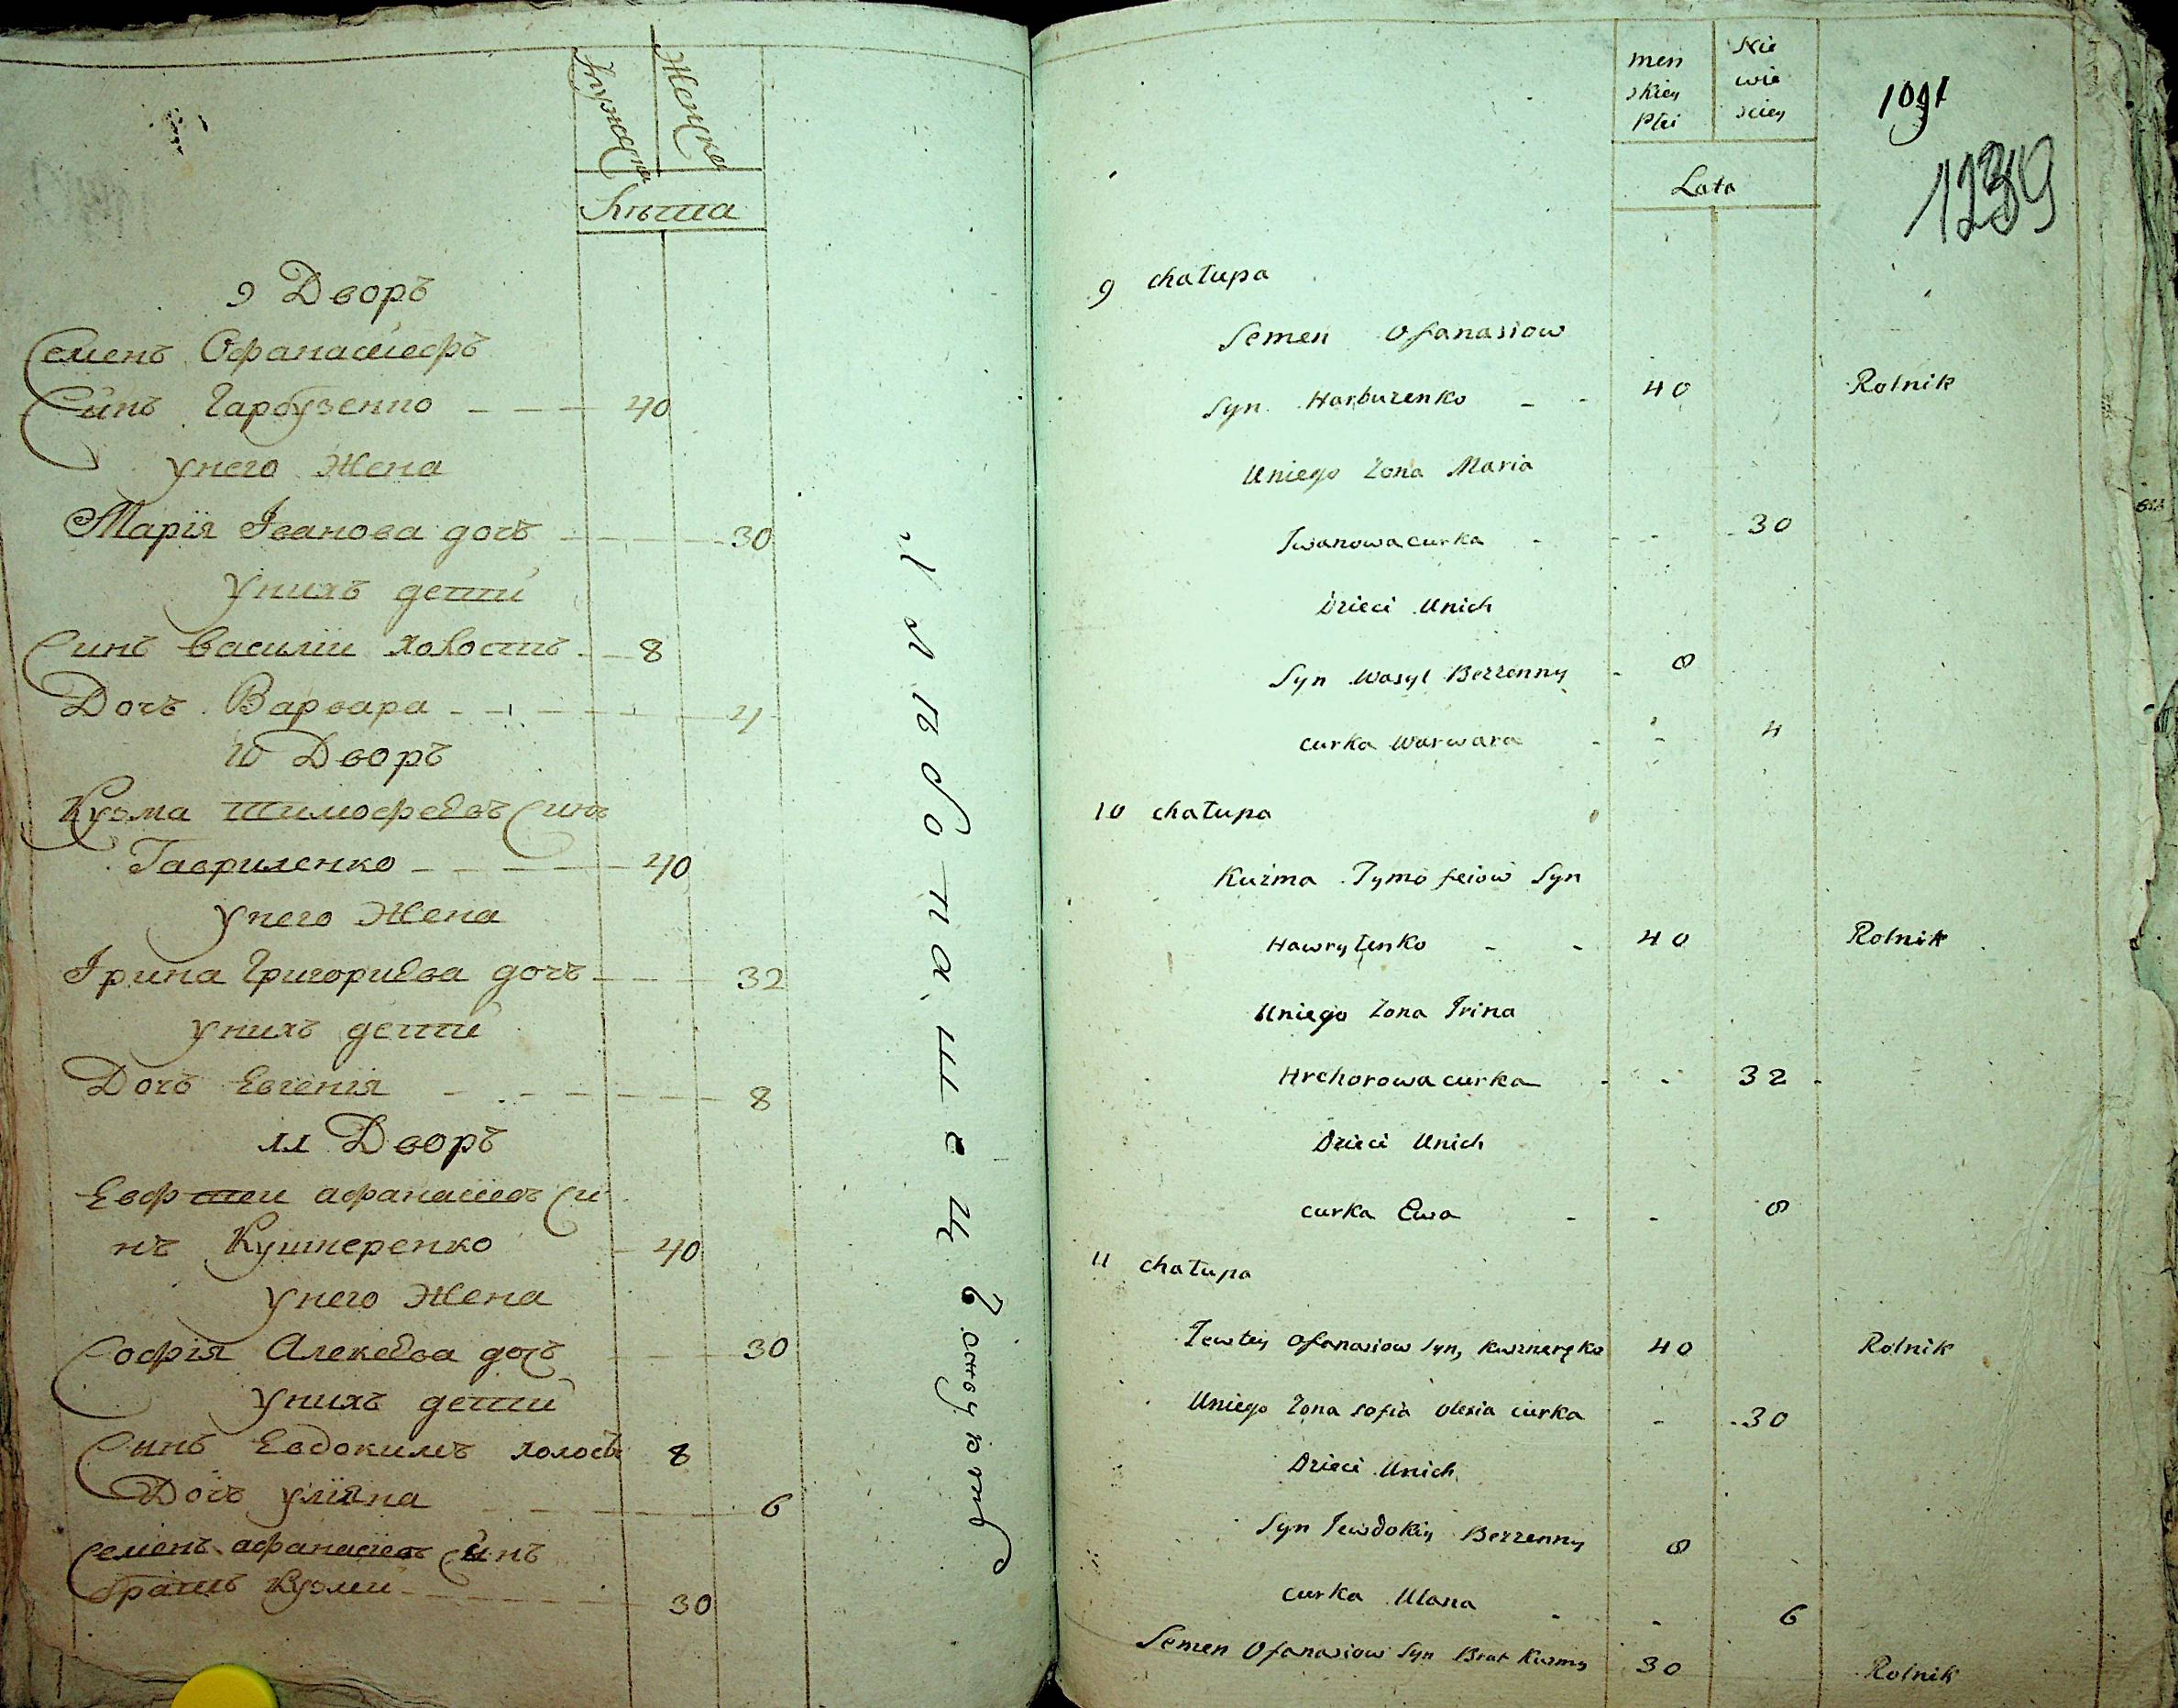 Мужеска
Женска
Лѣта
9 Дворъ
Семенъ Офанасиефъ
Синъ Гарбузенко — — — 40
Унего Жена
Марія Іванова дочъ — — — 30
Унихъ дети
Синъ василии холостъ — 8
Дочъ Варвара — — — 4
10 Дворъ
Кузма тимофеевъ Синъ
Гавриленко — — — 40
Унего Жена
Ірина Григориева дочъ — — — 32
Унихъ дети
Дочъ Евгенія — — — 8
11 Дворъ
Евфтеи афанасиевъ Си
нъ Кушнеренко — 40
Унего Жена
Софія Алексеева дочъ — — 30
Унихъ дети
Синъ Евдокимъ холостъ 8
Дочъ уліяна — — — 6
Семенъ афанасиевъ Синъ
братъ Кузми — — — 30
men
skiey
Płci
Nie
wie
sciey
Lata
1091
1239
9 chałupa
Semen Ofanasiow
Syn Harbuzenko - - 40 Rolnik
Uniego Zona Maria
Iwanowa curka - - - 30
Dzieci Unich
Syn Wasyl Bezzenny - 8
curka Warwara - - - 4
10 chałupa
Kuzma Tymofeiow Syn
Hawryłenko - - 40 Rolnik
Uniego Zona Irina
Hrehorowa curka - - 32
Dzieci Unich
curka Ewa - - 8
11 chałupa
Iewtey Ofanasiow Syn, Kuszneręko 40 Rolnik
Uniego Zona Sofia Olexia curka - - 30
Dzieci Unich
Syn Iewdokiy Bezzenny 8
curka Ulana - - 6
Semen Ofanasiow Syn Brat Kuzmy 30 Rolnik